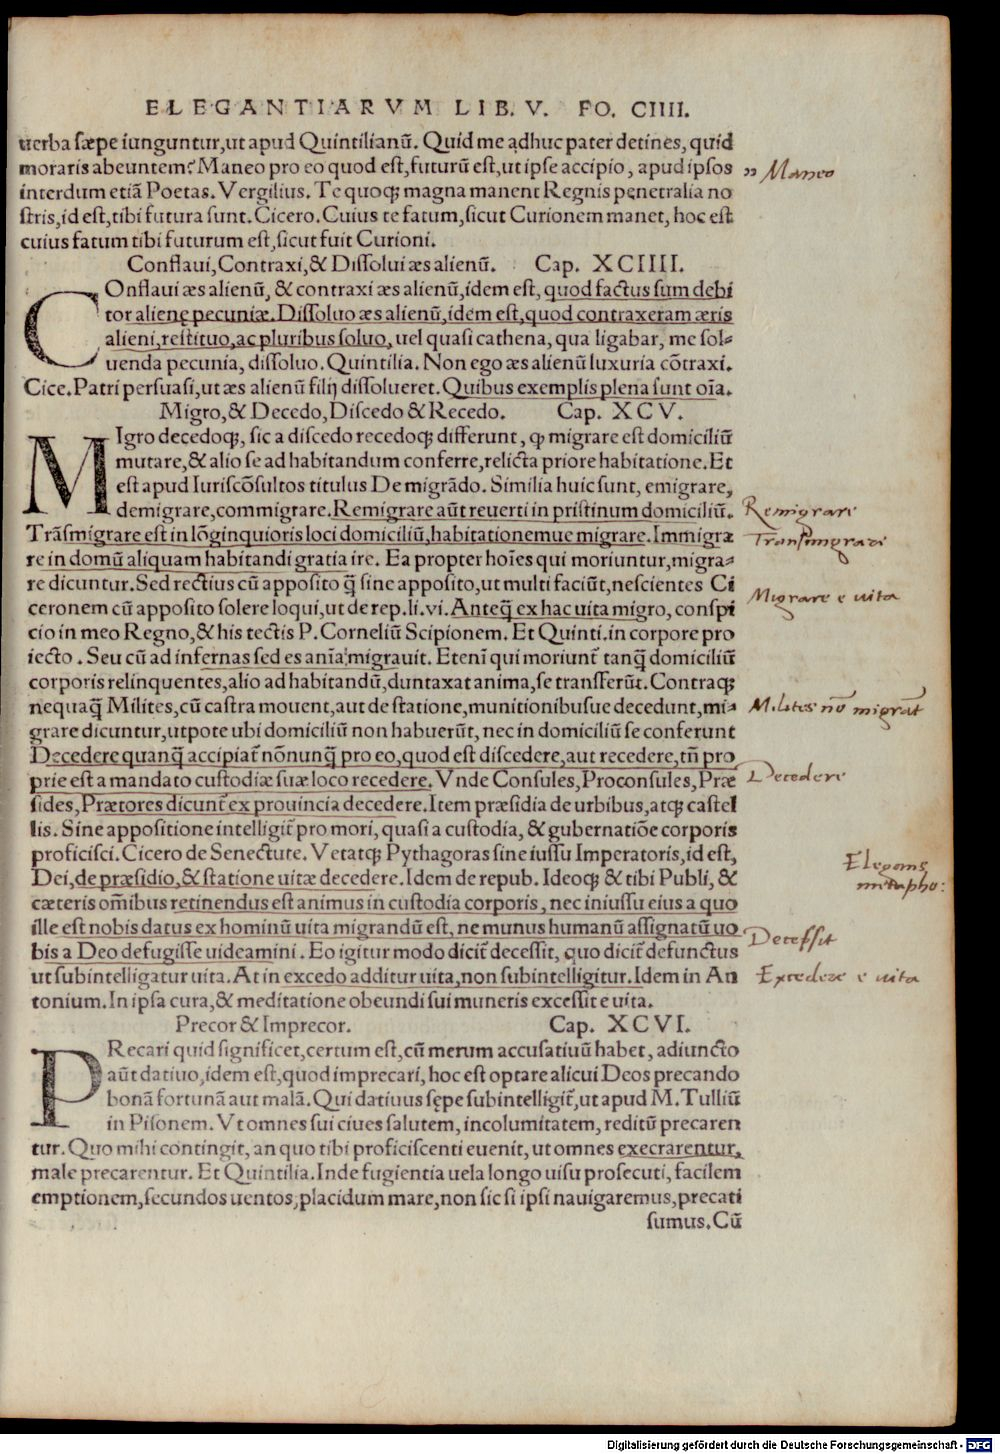 ELEGANTIARVM LIB. V. FO. CIIII.
uerba sæpe iunguntur, ut apud Quintilianũ. Quid me adhuc pater detines, quid
moraris abeuntem? Maneo pro eo quod est, futurũ est, ut ipse accipio, apud ipsos
interdum etiã Poetas. Vergilius. Te quoqꝫ magna manent Regnis penetralia no
stris, id est, tibi futura sunt. Cicero. Cuius te fatum, sicut Curionem manet, hoc est
cuius fatum tibi futurum est, sicut fuit Curioni.
Maneo
Conflaui, Contraxi, & Dissolui æs alienũ. Cap. XCIIII.
COnflaui æs alienũ, & contraxi æs alienũ, idem est, quod factus sum debi
tor alienę pecuniæ. Dissoluo æs alienũ, idem est, quod contraxeram æris
alieni, restituo, ac pluribus soluo, uel quasi cathena, qua ligabar, me sol-
uenda pecunia, dissoluo. Quintilia. Non ego æs alienũ luxuria cõtraxi.
Cice. Patri persuasi, ut æs alienũ filij dissolueret. Quibus exemplis plena sunt oĩa.
Migro, & Decedo, Discedo & Recedo. Cap. XCV.
MIgro decedoqꝫ, sic a discedo recedoqꝫ differunt, ꝙ migrare est domiciliũ
mutare, & alio se ad habitandum conferre, relicta priore habitatione. Et
est apud Iuriscõsultos titulus De migrãdo. Similia huic sunt, emigrare,
demigrare, commigrare. Remigrare aũt reuerti in pristinum domiciliũ.
Trãsmigrare est in lõginquioris loci domiciliũ, habitationemue migrare. Immigra
re in domũ aliquam habitandi gratia ire. Ea propter hoĩes qui moriuntur, migra-
re dicuntur. Sed rectius cũ apposito q̃ sine apposito, ut multi faciũt, nescientes Ci
ceronem cũ apposito solere loqui, ut de rep. li. vi. Anteq̃ ex hac uita migro, conspi
cio in meo Regno, & his tectis P. Corneliũ Scipionem. Et Quinti. in corpore pro
iecto. Seu cũ ad infernas sedes anĩa migrauit. Etenĩ qui moriunt̃ tanq̃ domiciliũ
corporis relinquentes, alio ad habitandũ, duntaxat anima, se transferũt. Contraqꝫ
nequaq̃ Milites, cũ castra mouent, aut de statione, munitionibusue decedunt, mi-
grare dicuntur, utpote ubi domiciliũ non habuerũt, nec in domiciliũ se conferunt
Decedere quanq̃ accipiat̃ nõnunq̃ pro eo, quod est discedere, aut recedere, tñ pro
prie est a mandato custodiæ suæ loco recedere. Vnde Consules, Proconsules, Præ
sides, Prætores dicunt̃ ex prouincia decedere. Item præsidia de urbibus, atqꝫ castel
lis. Sine appositione intelligit̃ pro mori, quasi a custodia, & gubernatiõe corporis
proficisci. Cicero de Senectute. Vetatqꝫ Pythagoras sine iussu Imperatoris, id est,
Dei, de præsidio, & statione uitæ decedere. Idem de repub. Ideoqꝫ & tibi Publi, &
cæteris om̃ibus retinendus est animus in custodia corporis, nec iniussu eius a quo
ille est nobis datus ex hominũ uita migrandũ est, ne munus humanũ assignatũ uo
bis a Deo defugisse uideamini. Eo igitur modo dicit̃ decessit, quo dicit̃ defunctus
ut subintelligatur uita. At in excedo additur uita, non subintelligitur. Idem in An
tonium. In ipsa cura, & meditatione obeundi sui muneris excessit e uita.
Remigrare
Transmigrare
Migrare e uita
Milites nõ migrãt
Decedere
Elegans
metapho:
Decessit
Excedere e uita
Precor & Imprecor. Cap. XCVI.
PRecari quid significet, certum est, cũ merum accusatiuũ habet, adiuncto
aũt datiuo, idem est, quod imprecari, hoc est optare alicui Deos precando
bonã fortunã aut malã. Qui datiuus sępe subintelligit̃, ut apud M. Tulliũ
in Pisonem. Vt omnes sui ciues salutem, incolumitatem, reditũ precaren
tur. Quo mihi contingit, an quo tibi proficiscenti euenit, ut omnes execrarentur,
male precarentur. Et Quintilia. Inde fugientia uela longo uisu prosecuti, facilem
emptionem, secundos uentos, placidum mare, non sic si ipsi nauigaremus, precati
sumus. Cũ
Digitalisierung gefördert durch die Deutsche Forschungsgemeinschaft - DFG